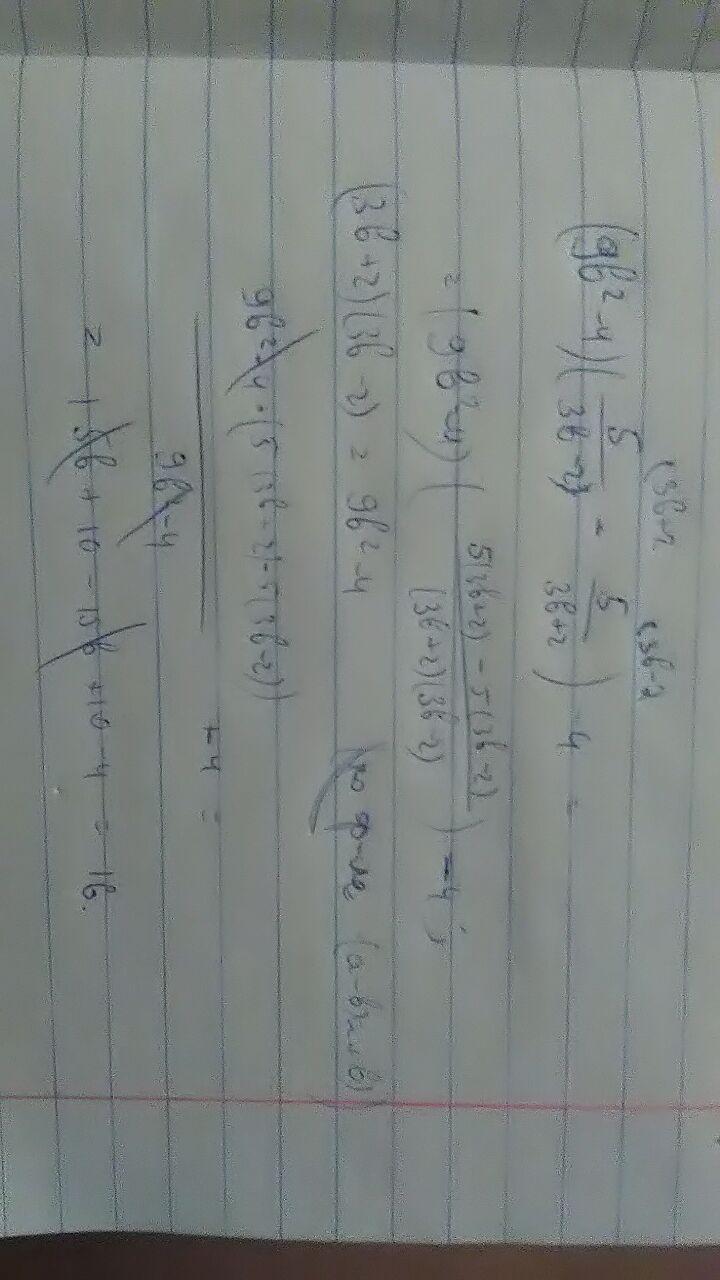 (3b+2 (3b-2
(9b²-4)(5/3b-2 - 5/3b+2) - 4 =
= (9b²-4)(5(3b+2) - 5(3b-2)/(3b+2)(3b-2)) - 4;
(3b+2)(3b-2) = 9b²-4 (по ф-ле (a-b)(a+b))
9b²-4·(5(3b+2)-5(3b-2))
/9b²-4 -4 =
= 15b+10-15b+10-4 = 16.